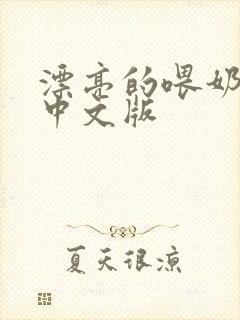 漂亮的喂奶
中文版
夏天很凉